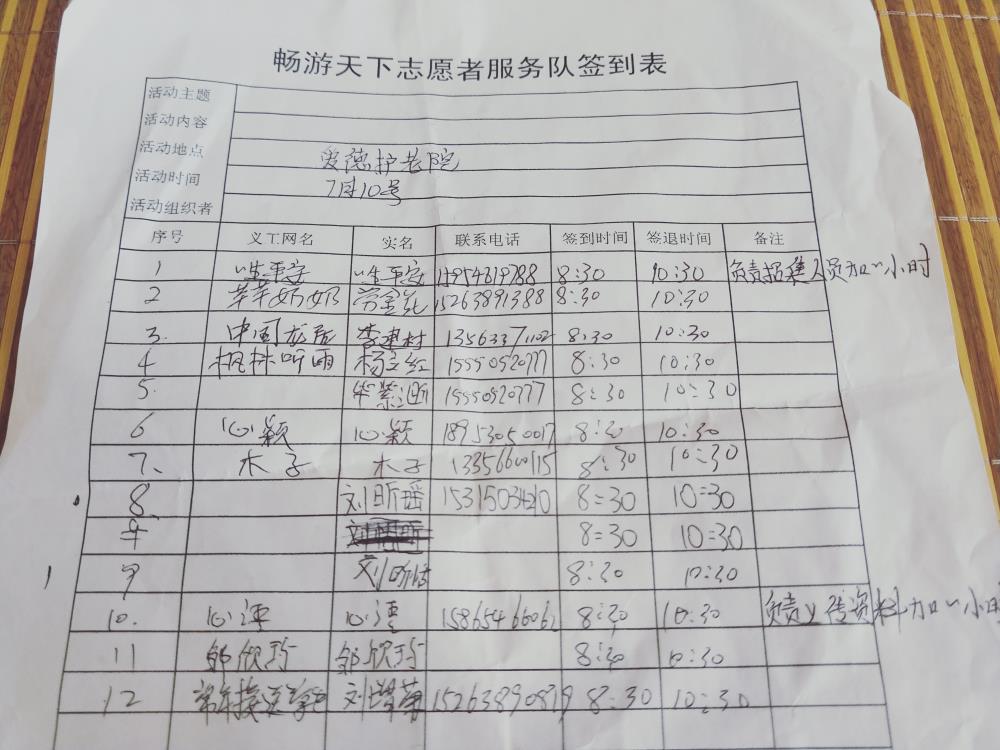 畅游天下志愿者服务队签到表
活动主题
活动内容
活动地点 爱德护老院
活动时间 7月10号
活动组织者
序号 义工网名 实名 联系电话 签到时间 签退时间 备注
1 一生平安 一生平安 8:30 10:30 负责招集人员加一小时
2 苹苹奶奶 15263891388 8:30 10:30
3. 中国龙 李建村 13563371102 8:30 10:30
4 枫林听雨 杨文红 15550520777 8:30 10:30
5. 毕紫 15550520777 8:30 10:30
6 心颖 心颖 18953050017 8:30 10:30
7、 木子 木子 13356600115 8:30 10:30
8 刘昕瑶 15315034210 8=30 10=30
8=30 10=30
9 刘昕 8:30 10:30
10. 心 心 15865466062 8:30 10:30 负责上传资料加一小时
11 邹欣玲 邹欣玲 8:30 10:30
12 刘 15263890879 8:30 10:30